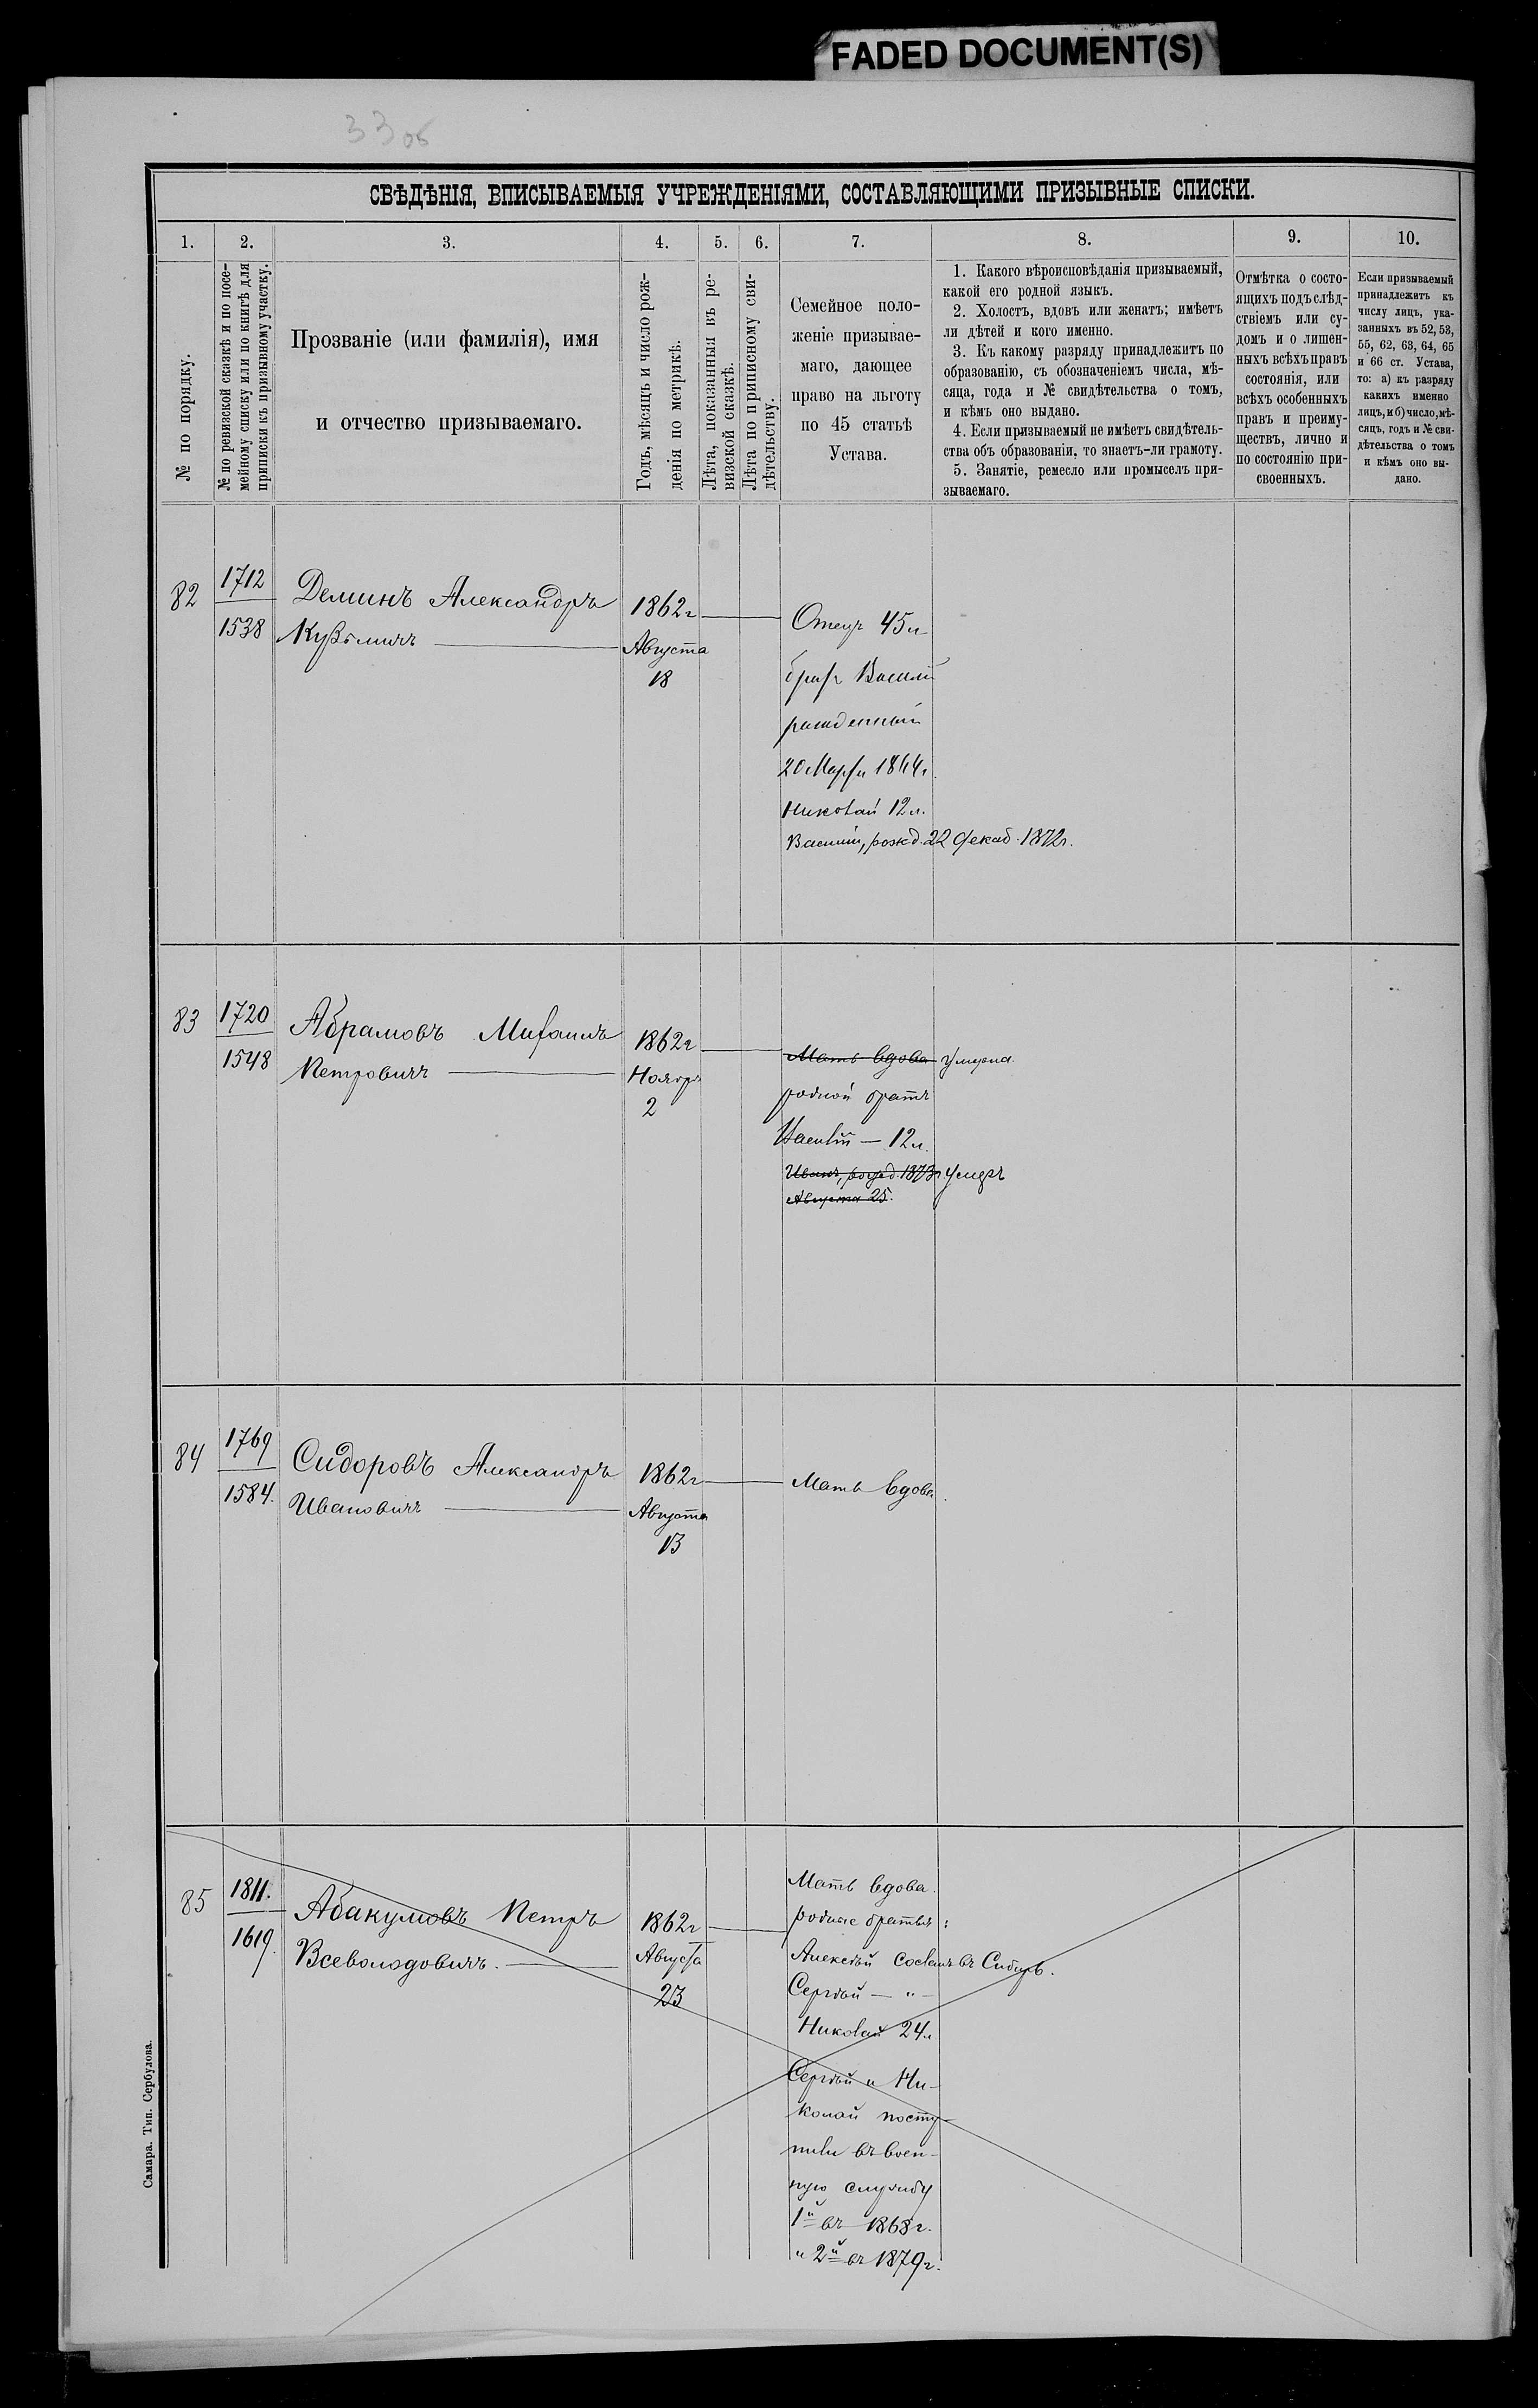 FADED DOCUMENT(S)
33 об
СВѢДѢНІЯ, ВПИСЫВАЕМЫЯ УЧРЕЖДЕНІЯМИ, СОСТАВЛЯЮЩИМИ ПРИЗЫВНЫЕ СПИСКИ.
1. 2. 3. 4. 5. 6. 7. 8. 9. 10.
№ по порядку.
№ по ревизской сказкѣ и по посе-
мейному списку или по книгѣ для
приписки къ призывному участку.
Прозваніе (или фамилія), имя
и отчество призываемаго.
Годъ, мѣсяцъ и число рож-
денія по метрикѣ.
Лѣта, показанныя въ ре-
визской сказкѣ.
Лѣта по приписному сви-
дѣтельству.
Семейное поло-
женіе призывае-
маго, дающее
право на льготу
по 45 статьѣ
Устава.
1. Какого вѣроисповѣданія призываемый,
какой его родной языкъ.
2. Холостъ, вдовъ или женатъ; имѣетъ
ли дѣтей и кого именно.
3. Къ какому разряду принадлежитъ по
образованію, съ обозначеніемъ числа, мѣ-
сяца, года и № свидѣтельства о томъ,
и кѣмъ оно выдано.
4. Если призываемый не имѣетъ свидѣтель-
ства объ образованіи, то знаетъ-ли грамоту.
5. Занятіе, ремесло или промыселъ при-
зываемаго.
Отмѣтка о состо-
ящихъ подъ слѣд-
ствіемъ или су-
домъ и о лишен-
ныхъ всѣхъ правъ
состоянія, или
всѣхъ особенныхъ
правъ и преиму-
ществъ, лично и
по состоянію при-
своенныхъ.
Если призываемый
принадлежитъ къ
числу лицъ, ука-
занныхъ въ 52, 53,
55, 62, 63, 64, 65
и 66 ст. Устава,
то: а) къ разряду
какихъ именно
лицъ, и б) число, мѣ-
сяцъ, годъ и № сви-
дѣтельства о томъ
и кѣмъ оно вы-
дано.
82
1712
1538
Деминъ Александръ
Кузьмичъ
1862 г
Августа
18
Отецъ 45 л
братъ Василій
рожденный
20 Марта 1864 г.
Николай 12 л.
Василій, рожд. 22 Декаб. 1872 г.
83
1720
1548
Абрамовъ Михаилъ
Петровичъ
1862 г
Ноября
2
Мать вдова умерла.
родной братъ
— 12 л.
Иванъ, рожд. 1873 г умеръ
Августа 25.
84
1769
1584.
Сидоровъ Александръ
Ивановичъ
1862 г
Августа
13
Мать вдова.
85
1811.
1619.
Абакумовъ Петръ
Всеволодовичъ.
1862 г
Августа
23
Мать вдова.
родные братья:
Алексѣй сосланъ въ Сибирь.
Сергѣй — " —
Николай 24 л
Сергѣй и Ни-
колай посту-
пили въ воен-
ную службу
1й въ 1868 г.
и 2й въ 1879 г.
Самара. Тип. Сербулова.